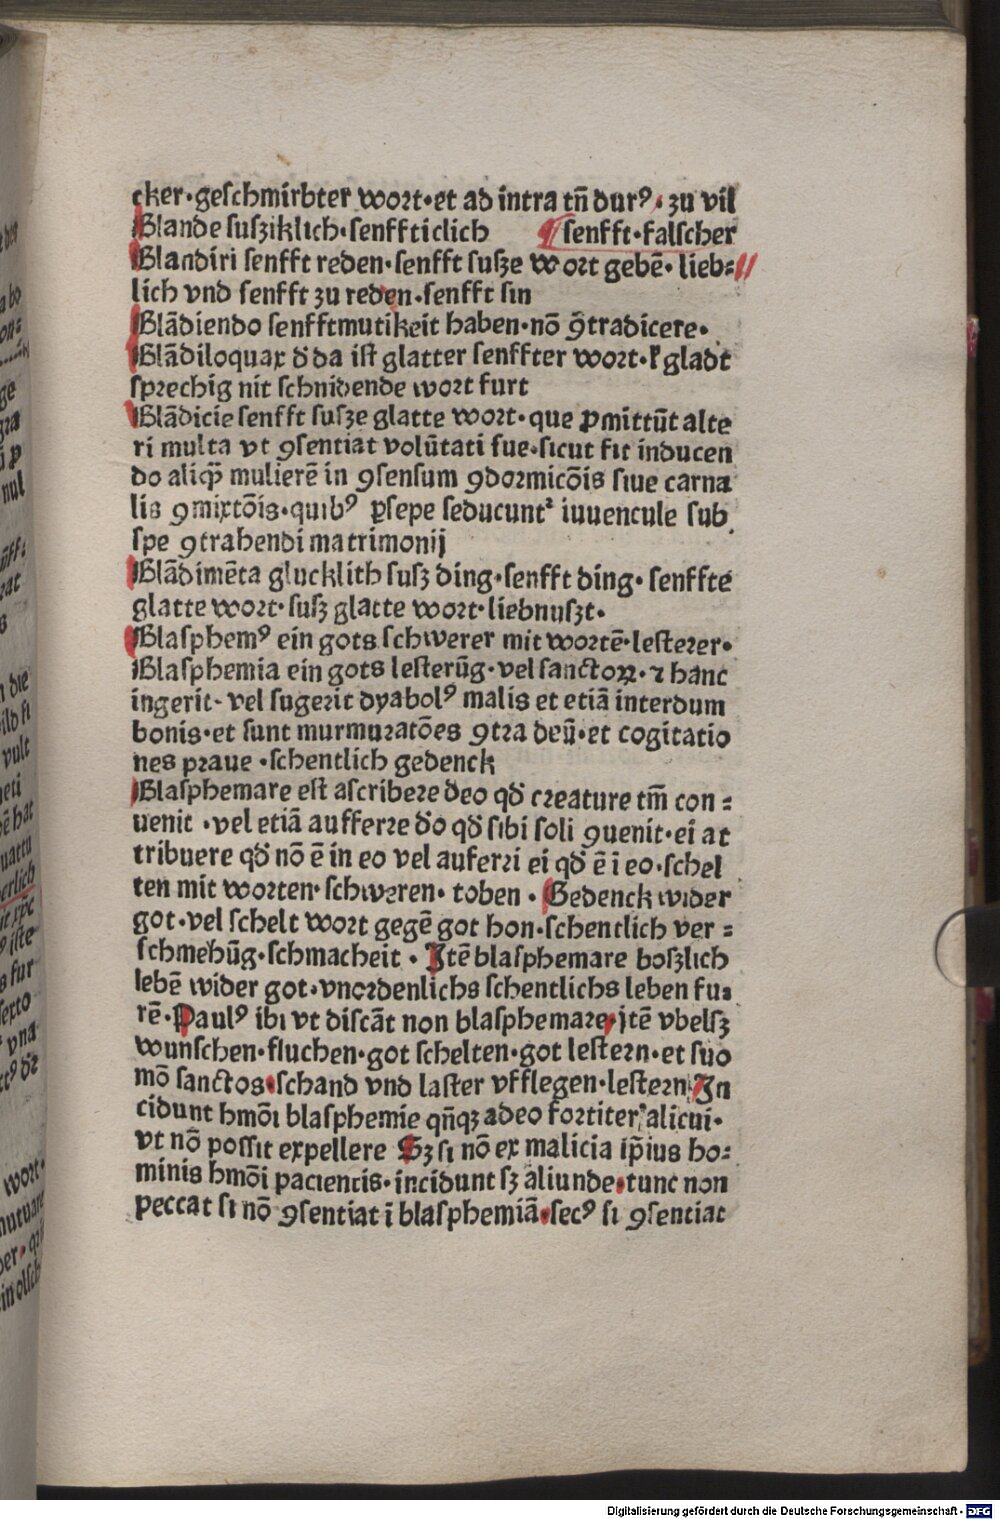 cker·geschmirbter wort·et ad intra tn̄ durꝰ· zu vil
Blande susziklich·senffticlich ¶ senfft·falscher
Blandiri senfft reden·senfft susze wort gebē·lieb⸗//
lich vnd senfft zu reden·senfft sin
Blādiendo senfftmutikeit haben·nō ꝯtradicere·
Blādiloquax d̄ da ist glatter senffter wort· gladt
sprechig nit schnidende wort furt
Blādicie senfft susze glatte wort·que ꝓmittūt alte
ri multa vt ꝯsentiat volūtati sue·sicut fit inducen
do aliqꝫ mulierē in ꝯsensum ꝯdormicōis siue carna
lis ꝯmixtōis·quibꝰ ꝑsepe seducunt᷑ iuuencule sub
spe ꝯtrahendi matrimonij
Blādimēta glucklith susz ding·senfft ding·senffte
glatte wort·susz glatte wort·liebnuszt·
Blasphemꝰ ein gots schwerer mit wortē·lesterer·
Blasphemia ein gots lesterūg·vel sanctoꝝ·⁊ hanc
ingerit·vel sugerit dyabolꝰ malis et etiā interdum
bonis·et sunt murmuratōes ꝯtra deū·et cogitatio
nes praue·schentlich gedenck
Blasphemare est ascribere deo qd̄ creature tm̄ con⸗
uenit·vel etiā aufferre d̄o qd̄ sibi soli ꝯuenit·ei at
tribuere qd̄ nō ē in eo vel auferri ei qd̄ ē ī eo·schel
ten mit worten·schweren·toben·Gedenck wider
got·vel schelt wort gegē got hon·schentlich ver⸗
schmehūg·schmacheit·Jtē blasphemare boszlich
lebē wider got·vnordenlichs schentlichs leben fu⸗
rē·Paulꝰ ibi vt discāt non blasphemare·jtē vbelsz
wunschen·fluchen·got schelten·got lestern·et suo
mō sanctos·schand vnd laster vfflegen·lestern Jn
cidunt hmōi blasphemie qn̄qꝫ adeo fortiter alicui·
vt nō possit expellere Sꝫ si nō ex malicia ip̄ius ho⸗
minis hmōi pacientis·incidunt sꝫ aliunde·tunc non
peccat si nō ꝯsentiat ī blasphemiā·secꝰ si ꝯsentiat
Digitalisierung gefördert durch die Deutsche Forschungsgemeinschaft - DFG